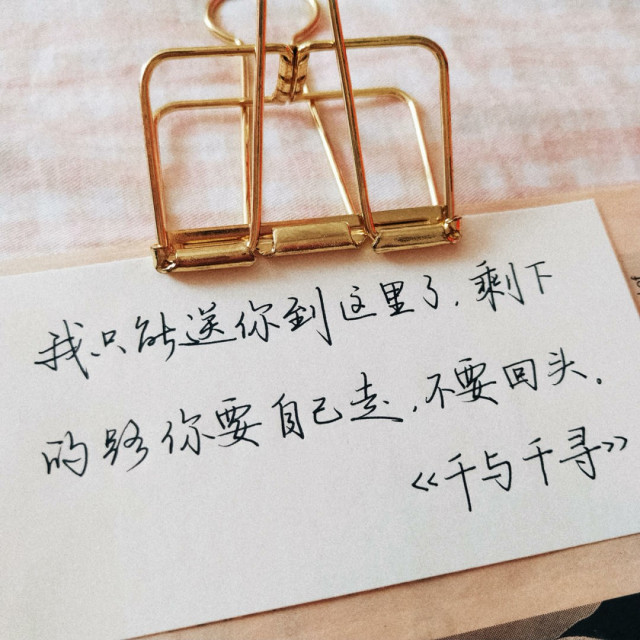 我只能送你到这里了，剩下
的路你要自己走，不要回头。
《千与千寻》